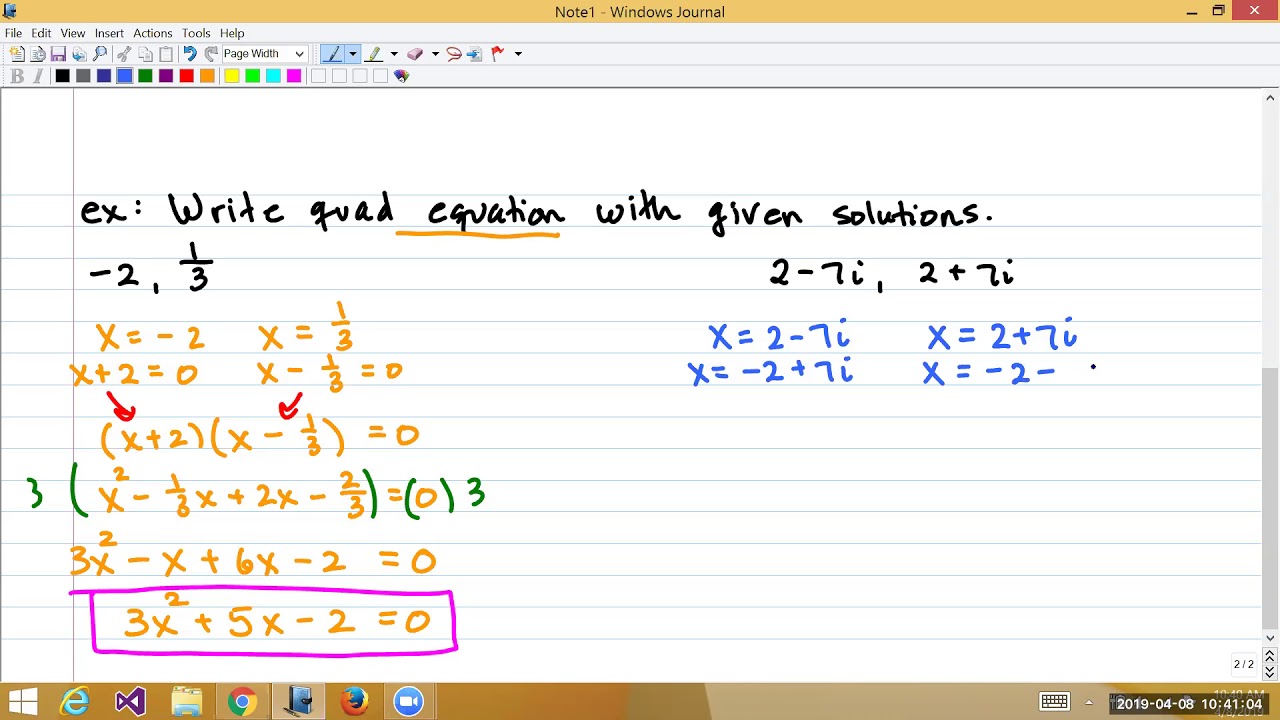 Note1 - Windows Journal
File Edit View Insert Actions Tools Help
Page Width
B I
ex: Write quad equation with given solutions.
-2, 1/3
x = -2 x = 1/3
x+2 = 0 x - 1/3 = 0
(x+2)(x - 1/3) = 0
3 (x² - 1/3x + 2x - 2/3) = (0) 3
3x² - x + 6x - 2 = 0
3x² + 5x - 2 = 0
2-7i, 2+7i
x = 2-7i x = 2+7i
x = -2+7i x = -2-
2 / 2
2019-04-08 10:41:04